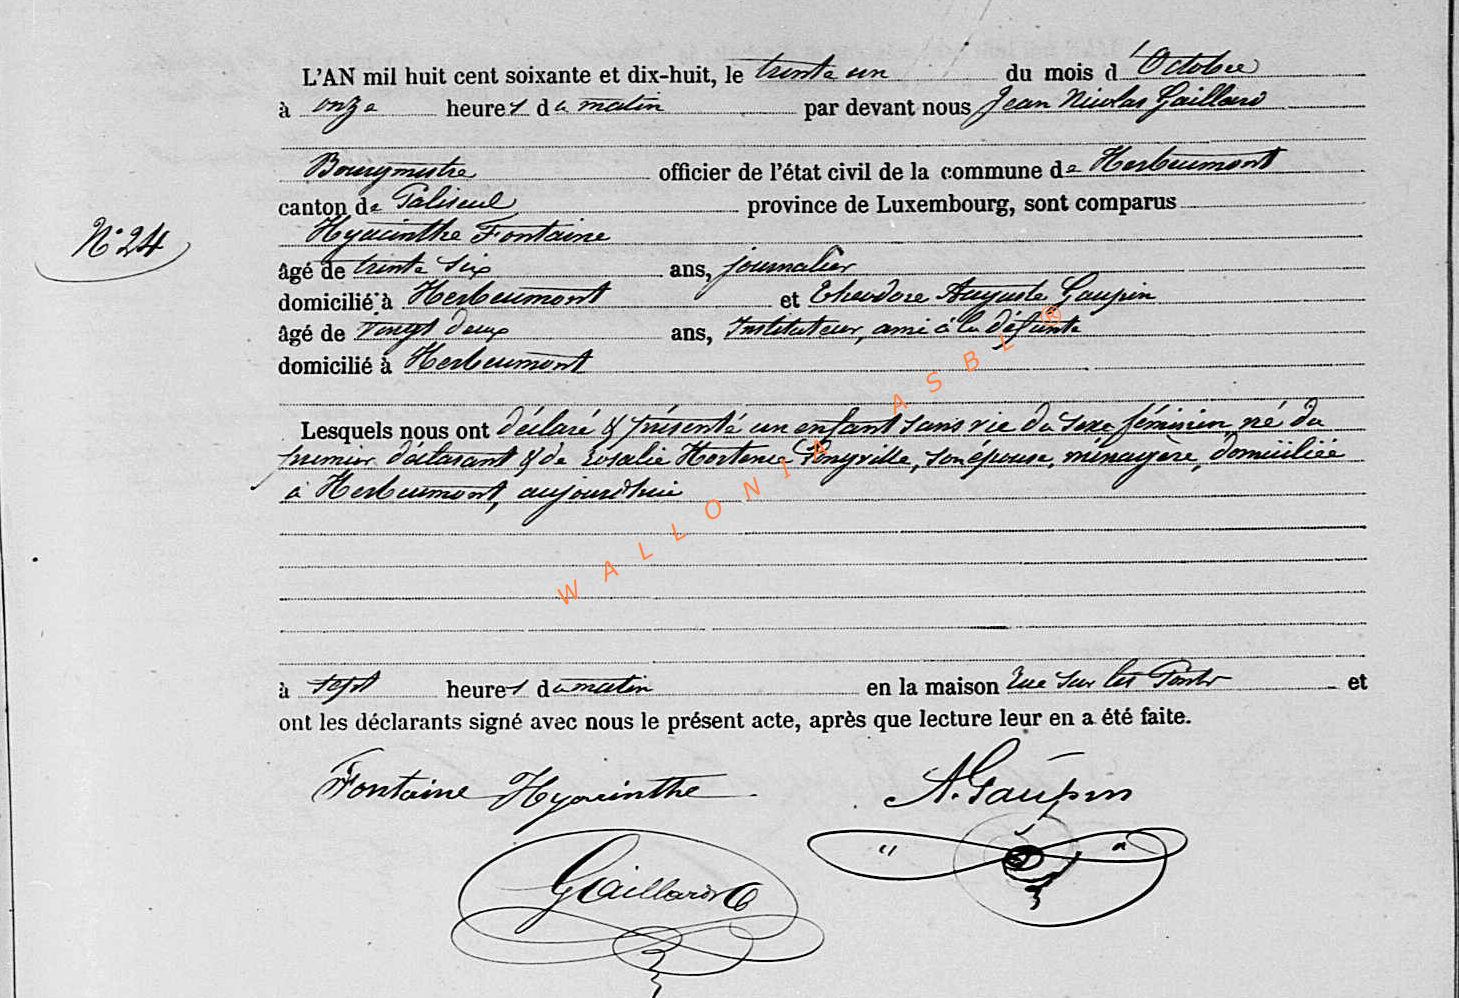 L'AN mil huit cent soixante et dix-huit, le trente un du mois d'Octobre
à onze heures du matin par devant nous Jean Nicolas Gaillard
Bourgmestre officier de l'état civil de la commune de Herbeumont
canton de Paliseul province de Luxembourg, sont comparus
Hyacinthe Fontaine
N° 24
âgé de trente six ans, journalier
domicilié à Herbeumont et Theodore Auguste Gaupin
âgé de Vingt deux ans, Instituteur, ami à la défunte
domicilié à Herbeumont
Lesquels nous ont déclaré & présenté un enfant sans vie du sexe féminin né du
premier déclarant & de Rosalie Hortence Ponsville, son épouse, ménagère, domiciliée
à Herbeumont, aujourd'hui
à sept heures du matin en la maison rue sur les Ponts et
ont les déclarants signé avec nous le présent acte, après que lecture leur en a été faite.
Fontaine Hyacinthe. A. Gaupin
Gaillard
WALLONIA ASBL ®